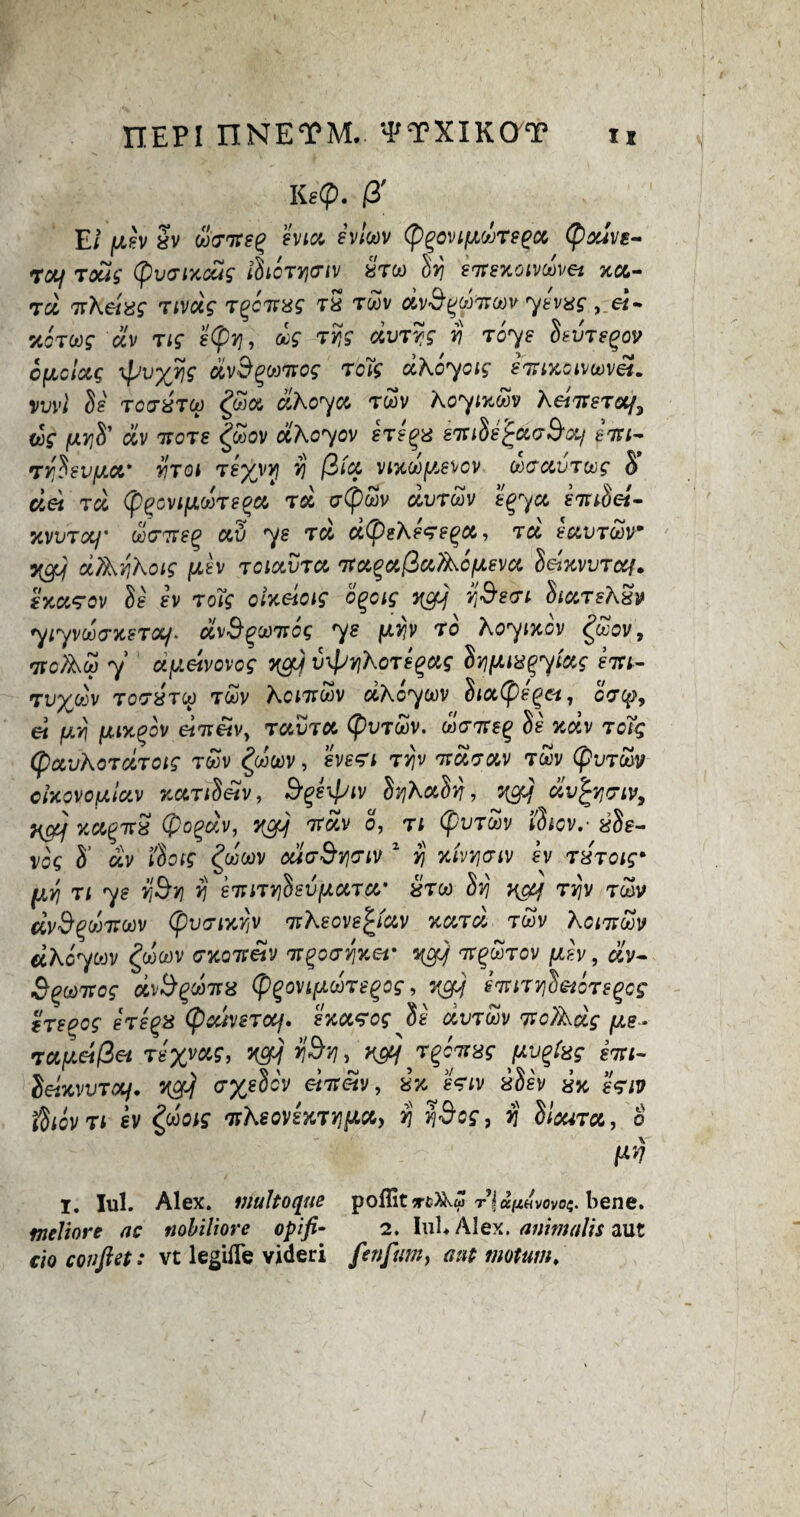 ΠΕΡΙ ΠΝΕΥΜ. ΨΥΧΙΚΟΥ 11
Κεφ. β′
Εἰ μὲν ȣ̓ν ὥσπερ ἔνια ἐνίων φρονιμώτερα φαίνε-
ται ταῖς φυσικαῖς ἰδιότησιν ȣ̔́τω δὴ ἐπεκοινώνει κα-
τὰ πλείȣς τινὰς τρόπȣς τȣ̃ τῶν ἀνθρώπων γένȣς, εἰ-
κότως ἄν τις ἔφη, ὡς τῆς ἀυτῆς ἢ τόγε δεύτερον
ὁμοίας ψυχῆς ἄνθρωπος τοῖς ἀλόγοις ἐπικοινωνεῖ.
νυνὶ δὲ τοσȣ́τω ζῶα ἄλογα τῶν λογικῶν λείπεται,
ὡς μηδ' ἄν ποτε ζῶον ἄλογον ἑτέρȣ ἐπιδέξασθαι ἐπι-
τήδευμα· ἤτοι τέχνη ἢ βίᾳ νικώμενον ὡσαύτως δ'
ἀεὶ τὰ φρονιμώτερα τὰ σφῶν ἀυτῶν ἔργα ἐπιδεί-
κνυται· ὥσπερ αὖ γε τὰ ἀφελέστερα, τὰ ἑαυτῶν·
καὶ ἀλλήλοις μὲν τοιαῦτα παραβαλλόμενα δείκνυται.
ἕκαστον δὲ ἐν τοῖς οἰκείοις ὅροις καὶ ἤθεσι διατελȣ̃ν
γιγνώσκεται. ἄνθρωπός γε μὴν τὸ λογικὸν ζῶον,
πολλῷ γ' ἀμείνονος καὶ ὑψηλοτέρας δημιȣργίας ἐπι-
τυχὼν τοσȣ́τῳ τῶν λοιπῶν ἀλόγων διαφέρει, ὅσῳ,
εἰ μὴ μικρὸν εἰπεῖν, ταῦτα φυτῶν. ὥσπερ δὲ κἀν τοῖς
φαυλοτάτοις τῶν ζώων, ἔνεστι τὴν πᾶσαν τῶν φυτῶν
οἰκονομίαν κατιδεῖν, θρέψιν δηλαδὴ, καὶ ἀυξησιν,
καὶ καρπȣ̃ φορὰν, καὶ πᾶν ὅ, τι φυτῶν ἴδιον· ȣ̓δε-
νὸς δ' ἂν ἴδοις ζώων αἴσθησιν ² ἢ κίνησιν ἐν τȣ́τοις·
μή τι γε ἤθη ἢ ἐπιτηδεύματα· ȣ̔́τω δὴ καὶ τὴν τῶν
ἀνθρώπων φυσικὴν πλεονεξίαν κατὰ τῶν λοιπῶν
ἀλόγων ζώων σκοπεῖν προσήκει· καὶ πρῶτον μὲν, ἄν-
θρωπος ἀνθρώπȣ φρονιμώτερος, καὶ ἐπιτηδειότερος
ἕτερος ἑτέρȣ φαίνεται. ἕκαστος δὲ ἀυτῶν πολλὰς με-
ταμείβει τέχνας, καὶ ἤθη, καὶ τρόπȣς μυρίȣς ἐπι-
δείκνυται. καὶ σχεδὸν εἰπεῖν, ȣ̓κ ἔστιν ȣ̓δὲν ȣ̓κ ἔστιν
ἴδιόν τι ἐν ζώοις πλεονέκτημα, ἢ ἦθος, ἢ δίαιτα, ὃ
μὴ
1. Iul. Alex. multoque
meliore ac nobiliore opifi-
cio conſtet: vt legiſſe videri
poſſit πολλῷ τῆς ἀμείνονος. bene.
2. Iul. Alex. animalis aut
ſenſum, aut motum.